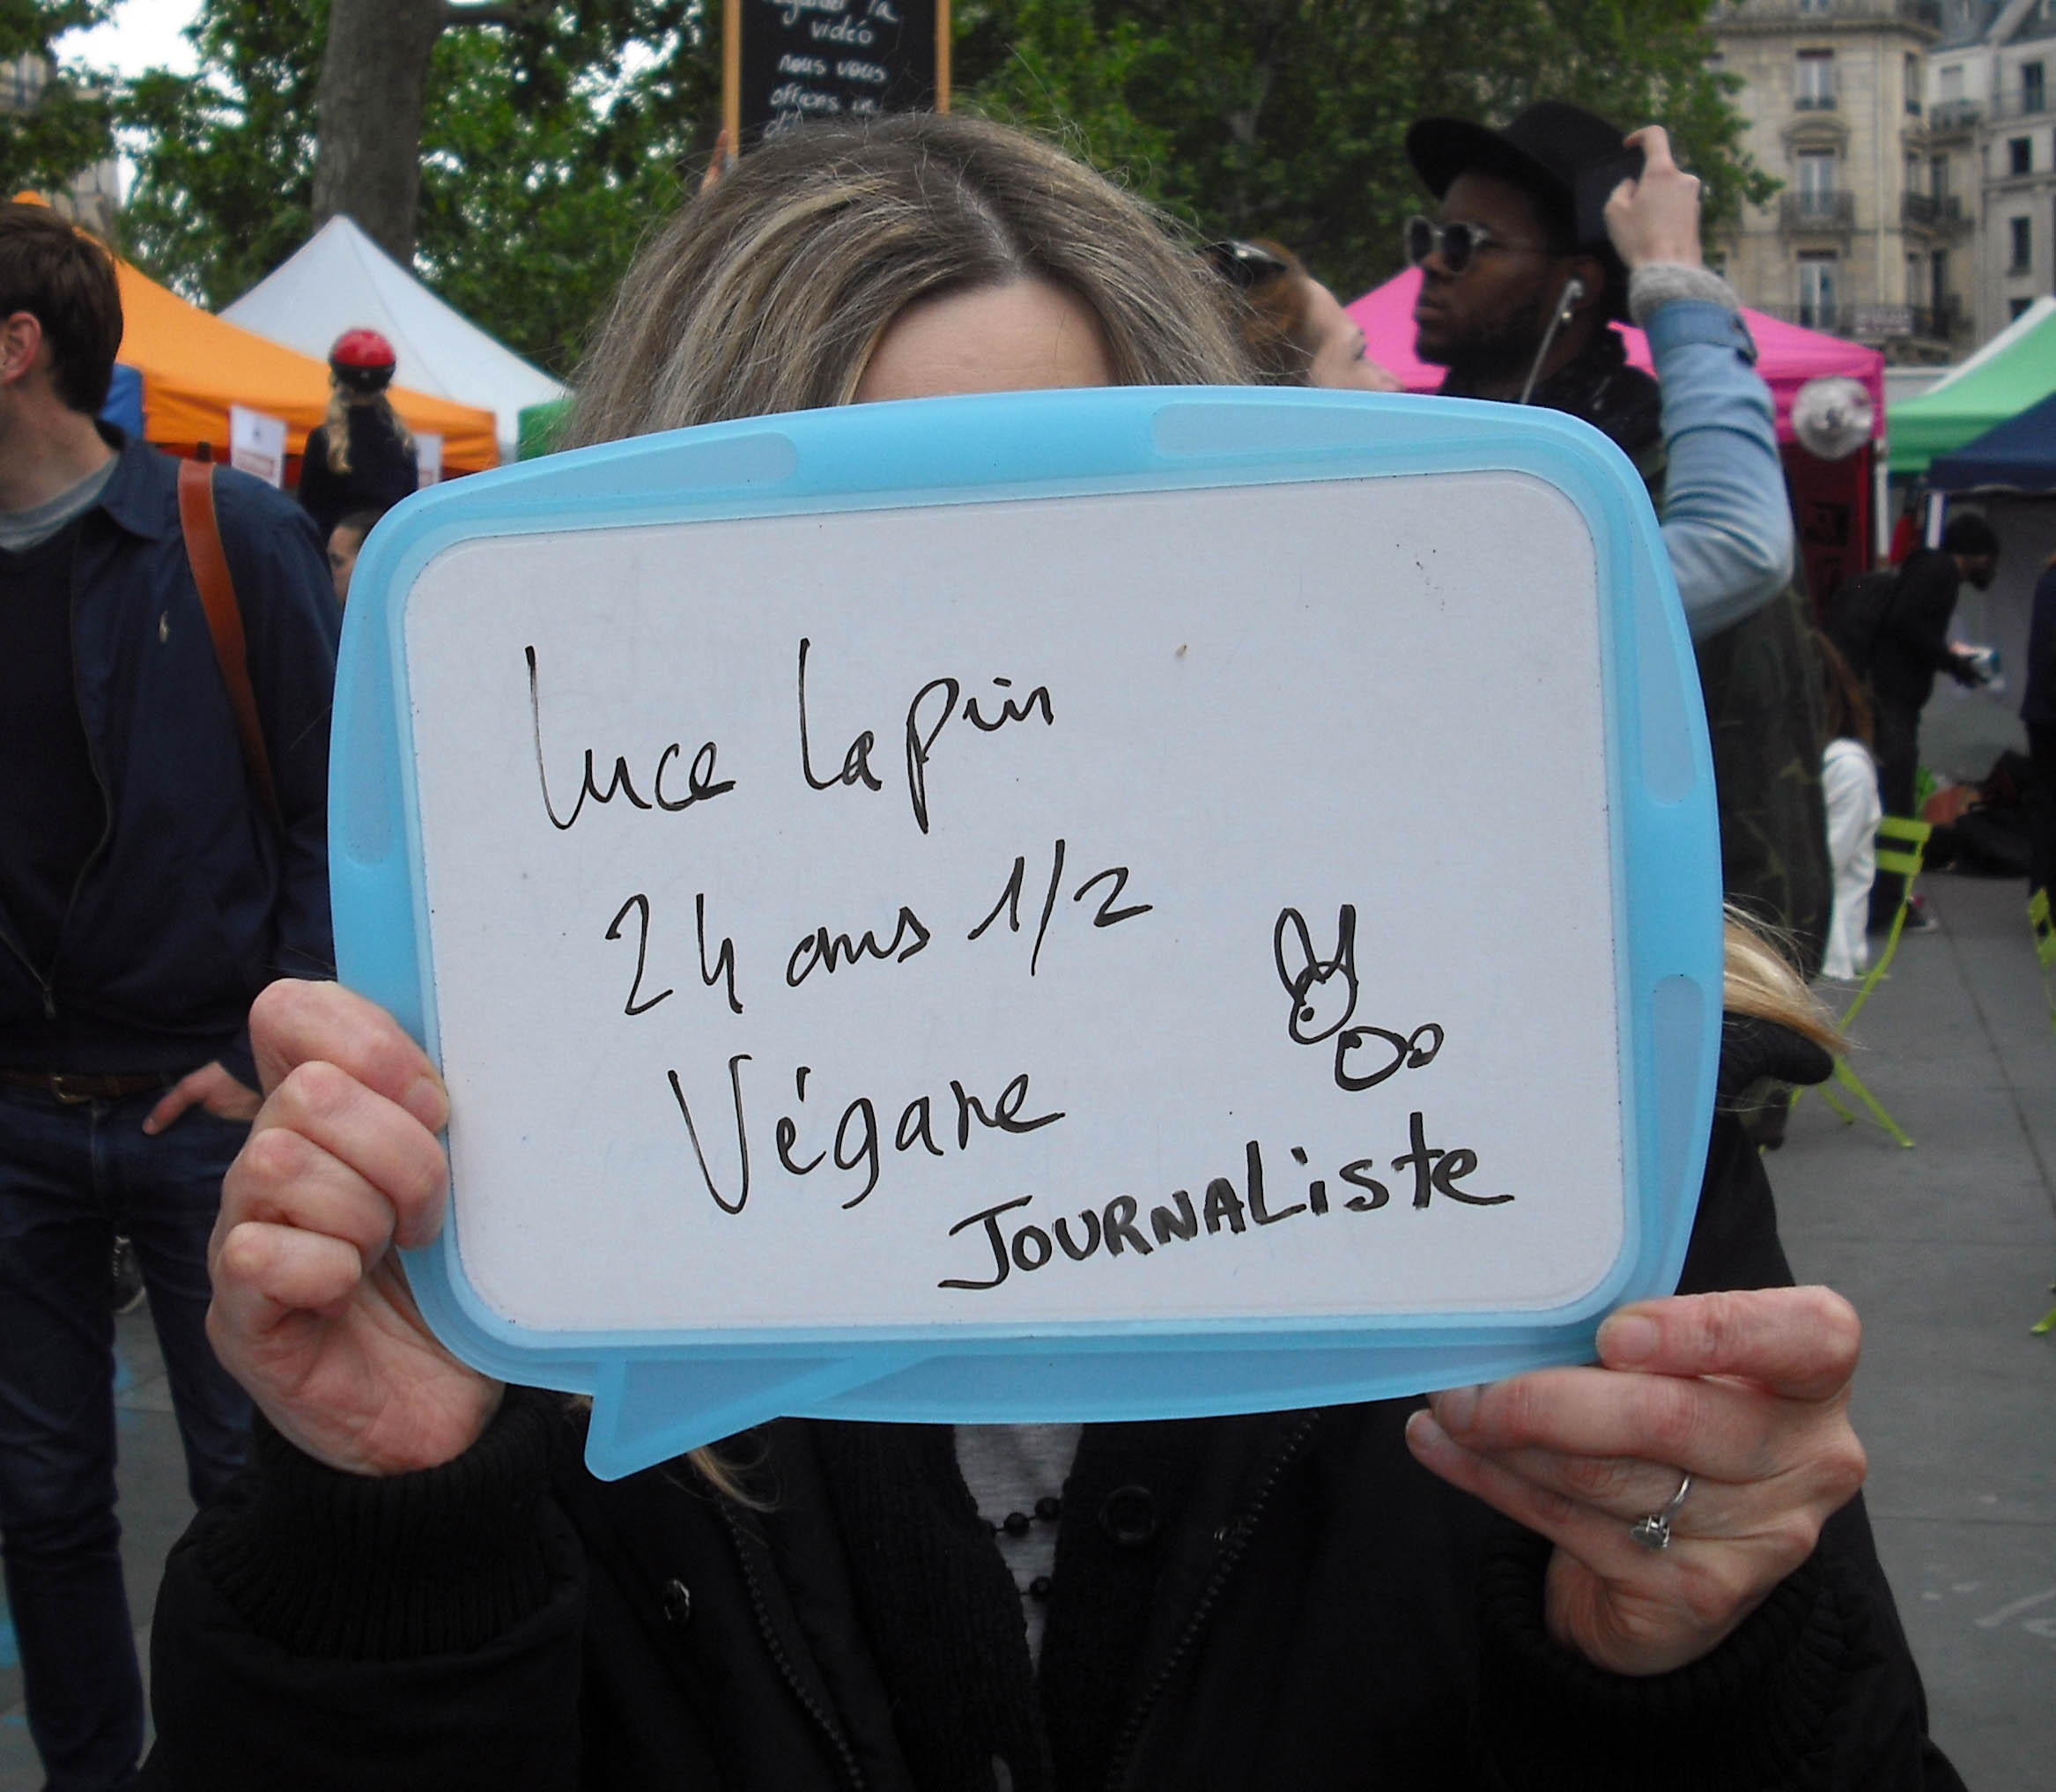 vidéo
nous vous
offrons un
Luce Lapin
24 ans 1/2
Végane
JOURNAListe